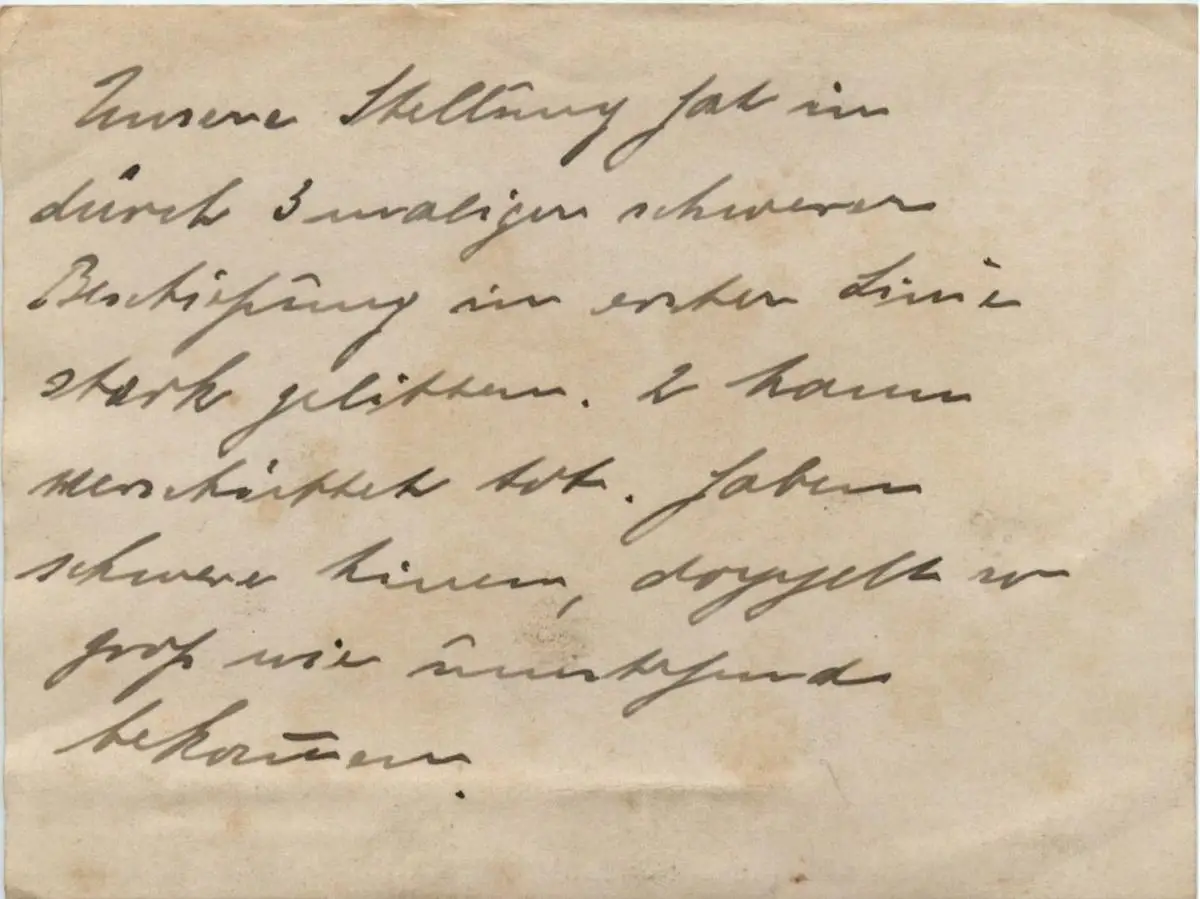 Unsere Stellung hat in
durch 3 maligen schweren
Beschießung in erster Linie
stark gelitten. 2 Mann
verschüttet tot. Haben
schwere Minen, doppelt so
groß wie umstehend
bekommen.